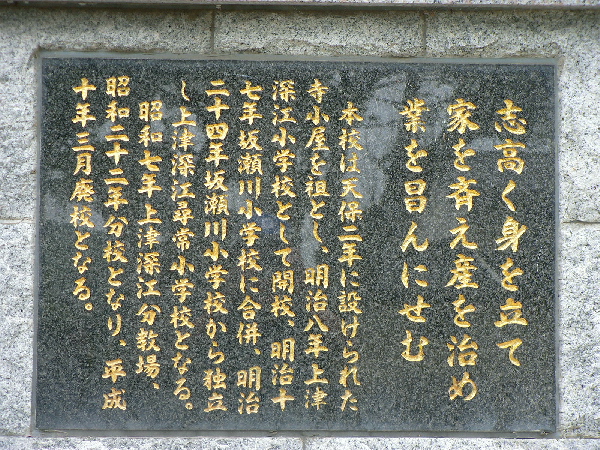 志高く身を立て
家を斉え産を治め
業を昌んにせむ
本校は天保二年に設けられた
寺小屋を祖とし、明治八年上津
深江小学校として開校、明治十
七年坂瀬川小学校に合併、明治
二十四年坂瀬川小学校から独立
し上津深江尋常小学校となる。
昭和七年上津深江分教場、
昭和二十二年分校となり、平成
十年三月廃校となる。